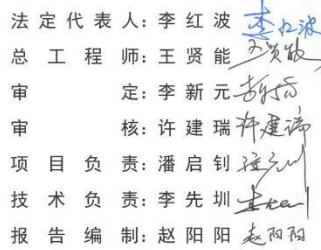 法定代表人：李红波 李红波
总工程师：王贤能 王贤能
审定：李新元
审核：许建瑞 许建瑞
项目负责：潘启钊
技术负责：李先圳
报告编制：赵阳阳 赵阳阳